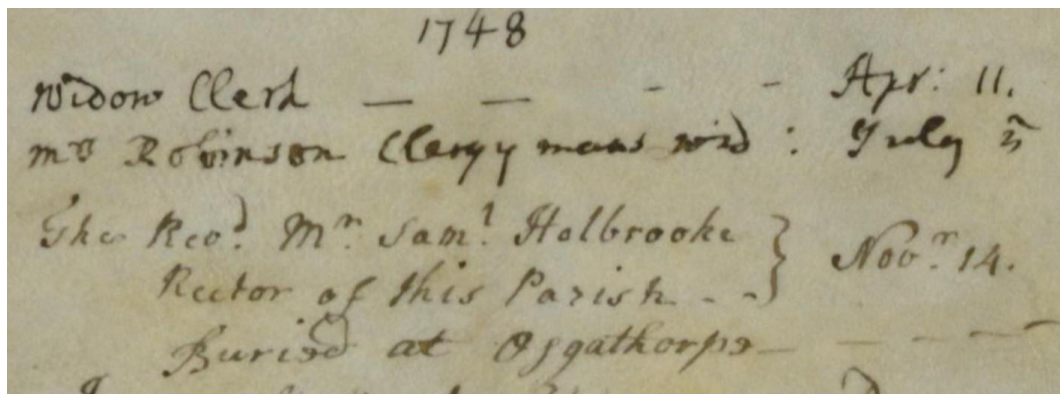 1748
Widow Clerk — — - - Apr: 11.
Mrs Robinson Clergymans wid: July 5
The Revd. Mr. Saml. Holbrooke
Rector of this Parish - - } Novr. 14.
Buried at Osgathorpe — — — —